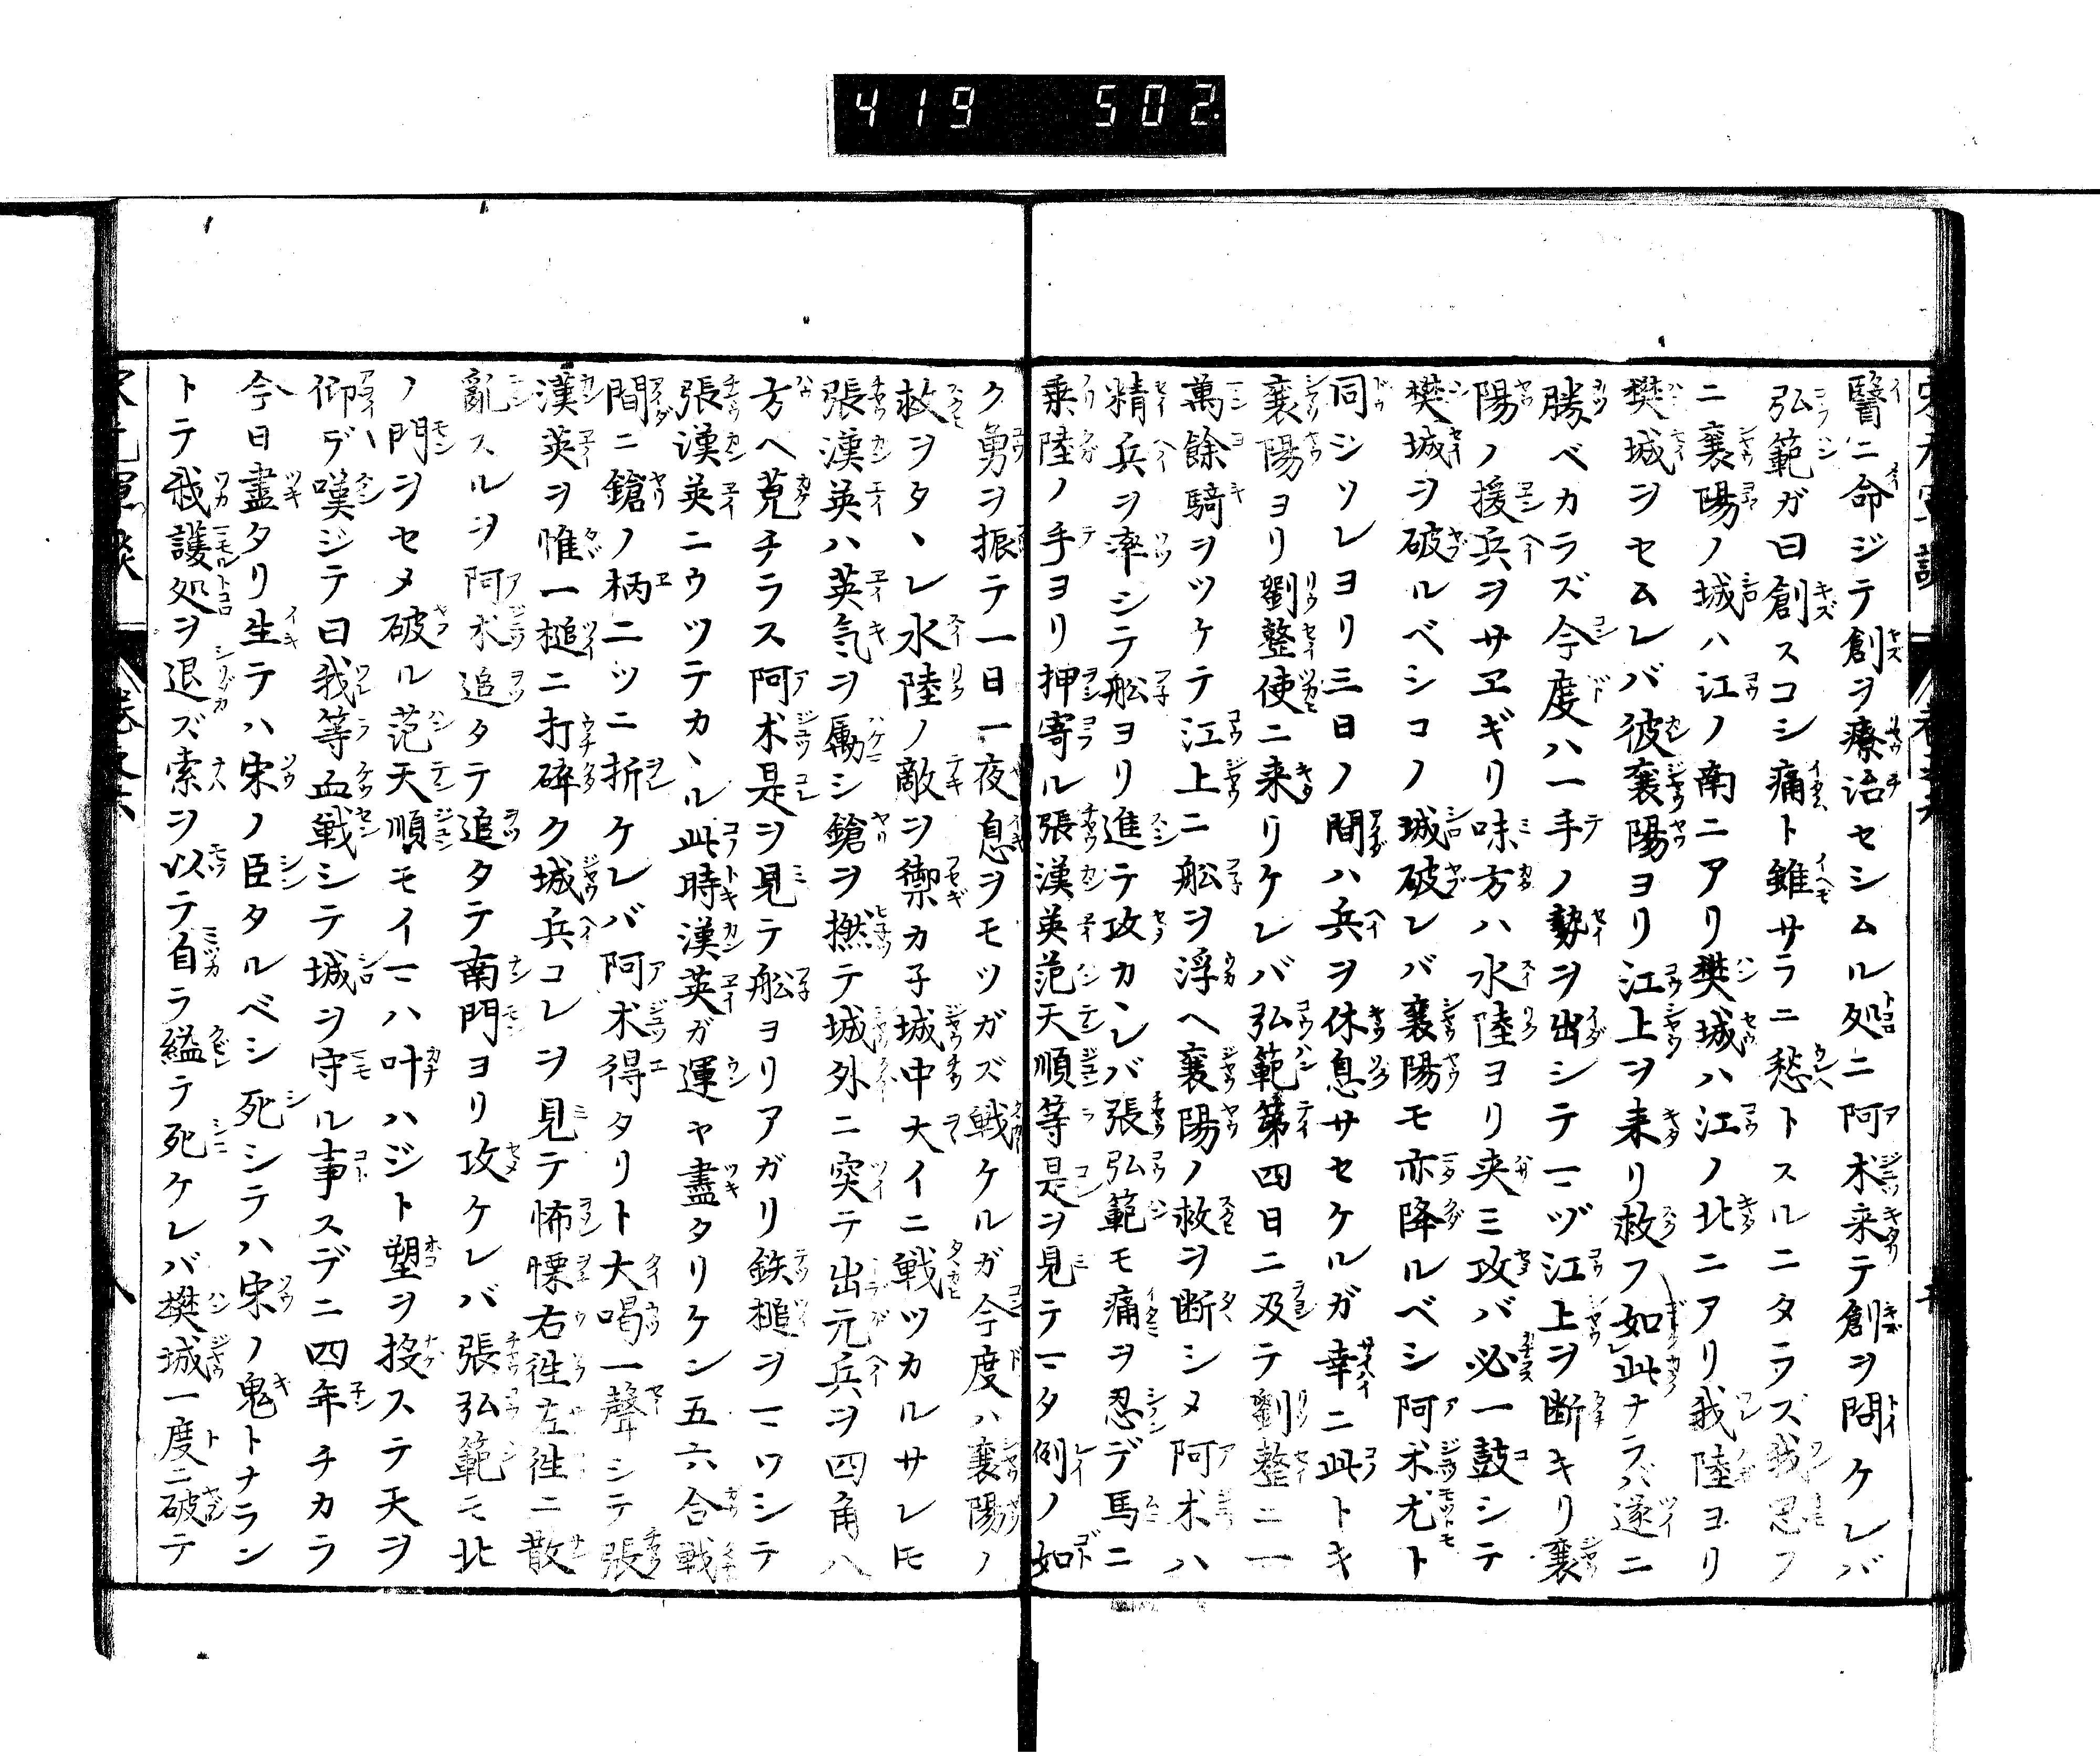 419 502.
醫ニ命ジテ創ヲ療治セシムル処ニ阿术来テ創ヲ問ケレバ
弘範ガ曰創スコシ痛ト雖サラニ愁トスルニタラズ我思フ
ニ襄陽ノ城ハ江ノ南ニアリ樊城ハ江ノ北ニアリ我陸ヨリ
樊城ヲセムレバ彼襄陽ヨリ江上ヲ来リ救フ如此ナラバ遂ニ
勝ベカラズ今度ハ一手ノ勢ヲ出シテマヅ江上ヲ断キリ襄
陽ノ援兵ヲサヱギリ味方ハ水陸ヨリ夾ミ攻バ必一鼓シテ
樊城ヲ破ルベシコノ城破レバ襄陽モ亦降ルベシ阿术尤ト
同シソレヨリ三日ノ間ハ兵ヲ休息サセケルガ幸ニ此トキ
襄陽ヨリ劉整使ニ来リケレバ弘範第四日ニ及テ劉整ニ一
萬餘騎ヲツケテ江上ニ舩ヲ浮ヘ襄陽ノ救ヲ断シメ阿术ハ
精兵ヲ率シテ舩ヨリ進テ攻カヽレバ張弘範モ痛ヲ忍デ馬ニ
乗陸ノ手ヨリ押寄ル張漢英范天順等是ヲ見テマタ例ノ如
ク勇ヲ振テ一日一夜息ヲモツガズ戦ケルガ今度ハ襄陽ノ
救ヲタヽレ水陸ノ敵ヲ禦カ子城中大イニ戦ツカルサレ𪜈
張漢英ハ英気ヲ勵シ鎗ヲ撚テ城外ニ突テ出元兵ヲ四角八
方ヘ蒐チラス阿术是ヲ見テ舩ヨリアガリ鉄槌ヲマワシテ
張漢英ニウツテカヽル此時漢英ガ運ヤ盡タリケン五六合戦
間ニ鎗ノ柄二ツニ折ケレバ阿术得タリト大喝一聲シテ張
漢英ヲ惟一槌ニ打碎ク城兵コレヲ見テ怖慄右徃左徃ニ散
亂スルヲ阿术追タテ追タテ南門ヨリ攻ケレバ張弘範モ北
ノ門ヲセメ破ル范天順モイマハ叶ハジト塑ヲ投ステ天ヲ
仰デ嘆ジテ曰我等血戦シテ城ヲ守ル事スデニ四年チカラ
今日盡タリ生テハ宋ノ臣タルベシ死シテハ宋ノ鬼トナラン
トテ我護処ヲ退ズ索ヲ以テ自ラ縊テ死ケレバ樊城一度ニ破テ